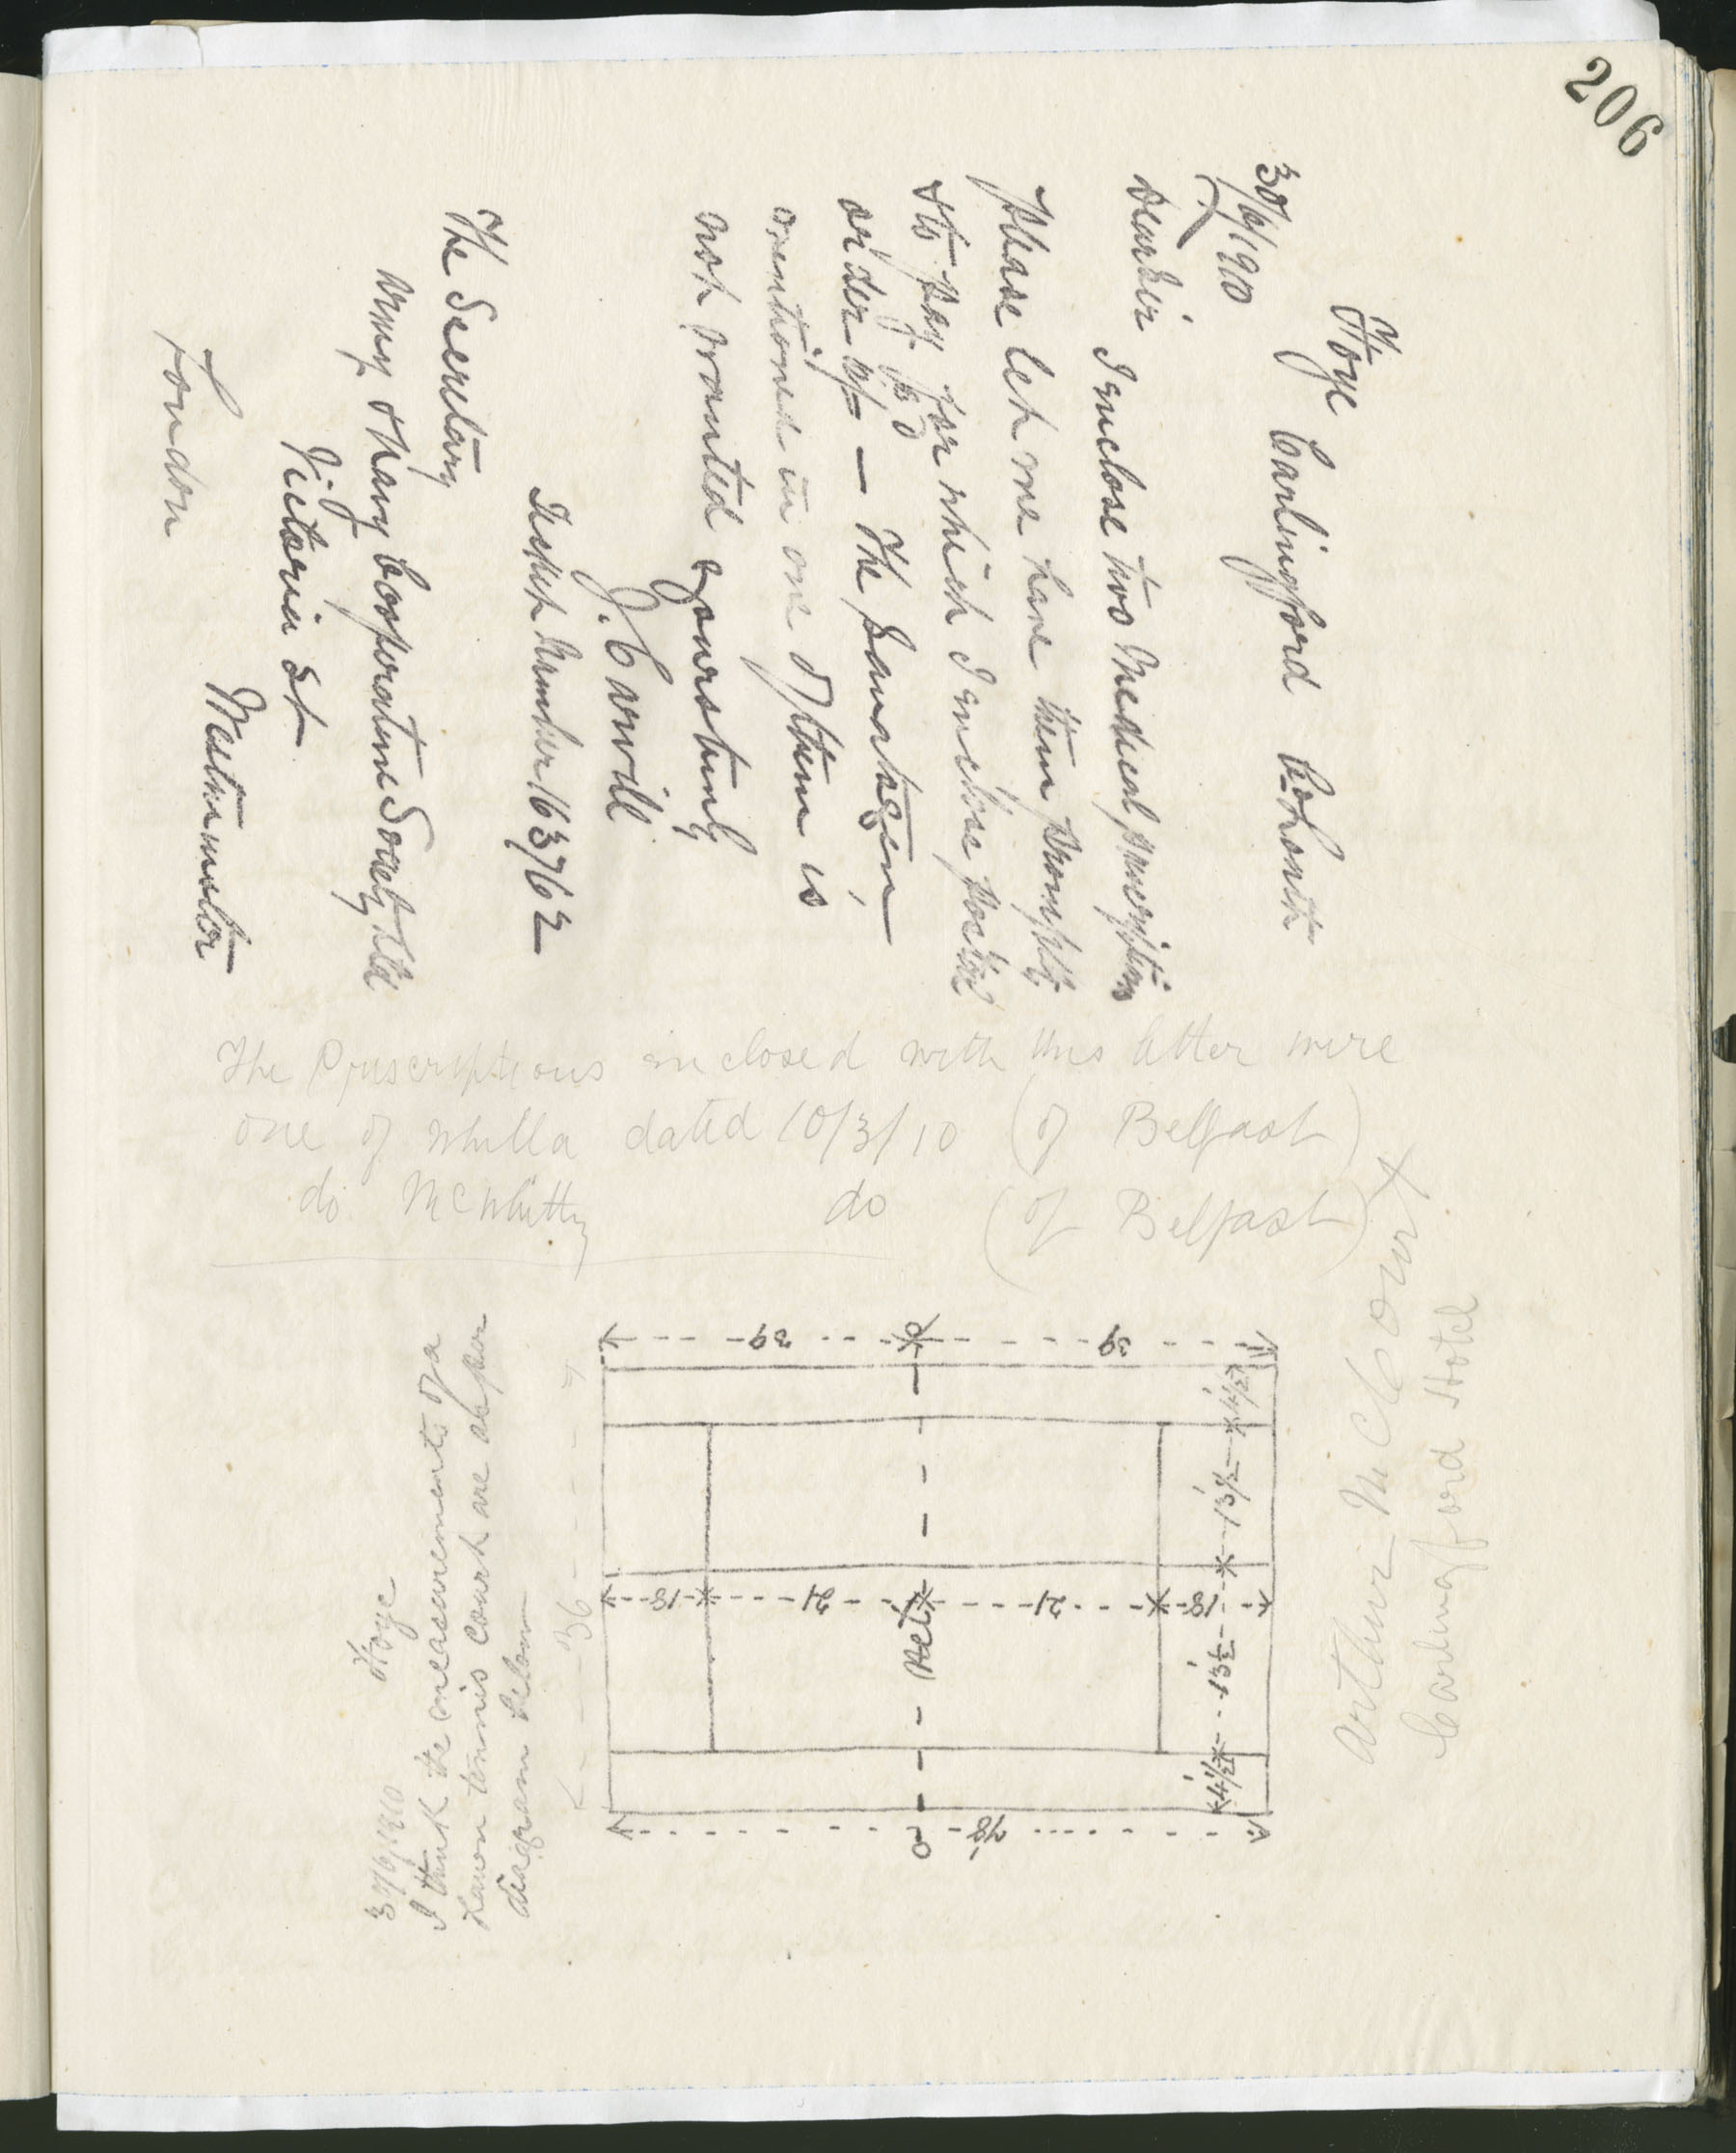 206
Ghoye Carlingford Co Louth
30/6/1910
Dear Sir
I enclose two Medical prescriptions
please let me have them promptly
& to pay for which I enclose postal
order of — The Sanatogen
mentioned in one of them is
not wanted yours truly
J. Carvill
Ticket Number 163762
The Secretary
Army & Navy Cooperative Society Ltd
Victoria St
Westminster
London
The Prescriptions enclosed with this letter were
one of Whitla dated 10/3/10 (of Belfast)
do McWhitty do (of Belfast)
30/6/1910 Ghoye
I think the measurements of a
Lawn tennis court are as per
diagram below
36
39 39
4½ 13½ 13½ 4½
18 21 21 18
Net
78
Arthur McCourt
Carlingford Hotel